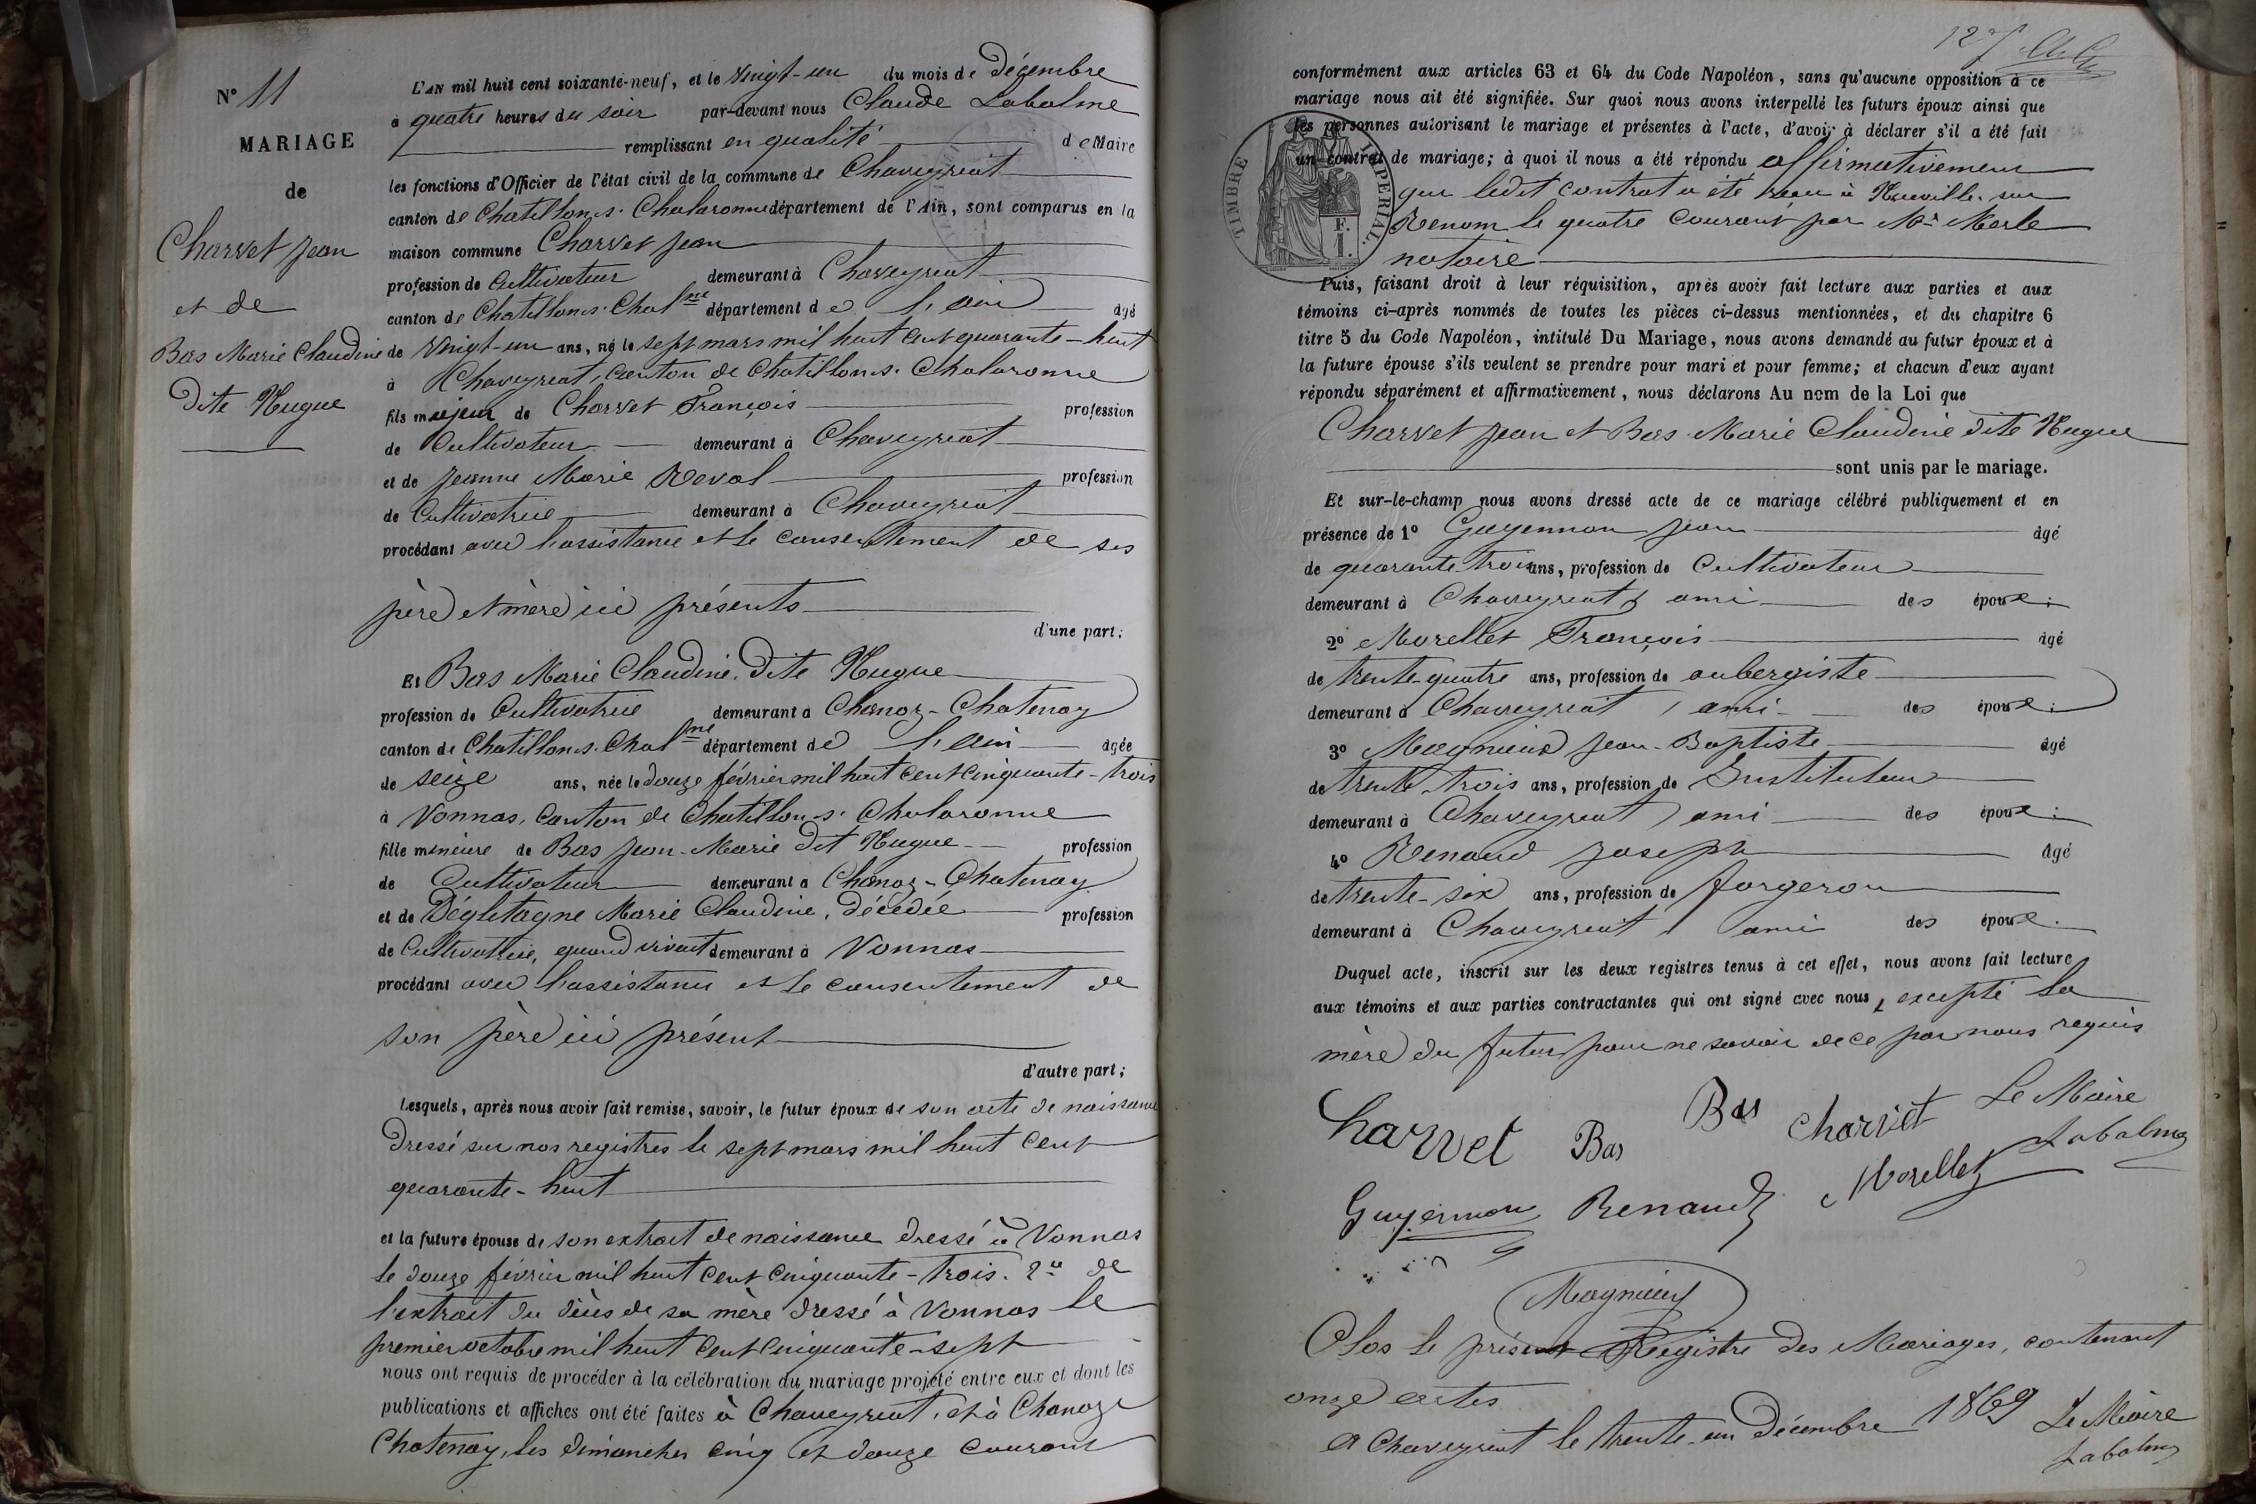 N° 11
MARIAGE
de
Charvet Jean
et de
Bas Marie Claudine
dite Hugue
L'AN mil huit cent soixante-neuf, et le vingt-un du mois de Décembre
à quatre heures du soir par-devant nous Claude Labalme
remplissant en qualité de Maire
les fonctions d'Officier de l'état civil de la commune de Chaveyriat
canton de Chatillon s. Chalaronne département de l'Ain, sont comparus en la
maison commune Charvet Jean
profession de Cultivateur demeurant à Chaveyriat
canton de Chatillon s. Chalne département de l'ain âgé
de vingt-un ans, né le sept mars mil huit cent quarante-huit
à Chaveyriat, canton de Chatillon s. Chalaronne
fils majeur de Charvet François profession
de Cultivateur demeurant à Chaveyriat
et de Jeanne Marie Reval profession
de Cultivatrice demeurant à Chaveyriat
procédant avec l'assistance et le consentement de ses
père et mère ici présents
d'une part;
Et Bas Marie Claudine dite Hugue
profession de Cultivatrice demeurant à Chanoz-Chatenay
canton de Chatillon s. Chalne département de l'ain âgée
de seize ans, née le douze février mil huit cent cinquante-trois
à Vonnas, canton de Chatillon s. Chalaronne
fille mineure de Bas Jean-Marie dit Hugue profession
de Cultivateur demeurant à Chanoz-Chatenay
et de Dégletagne Marie Claudine, décédée profession
de Cultivatrice, quand vivait demeurant à Vonnas
procédant avec l'assistance et le consentement de
son père ici présent
d'autre part;
Lesquels, après nous avoir fait remise, savoir, le futur époux de son acte de naissance
dressé sur nos registres le sept mars mil huit cent
quarante-huit
et la future épouse de son extrait de naissance dressé à Vonnas
le douze février mil huit cent cinquante-trois. 2° de
l'extrait du décès de sa mère dressé à Vonnas le
premier octobre mil huit cent cinquante-sept
nous ont requis de procéder à la célébration du mariage projeté entre eux et dont les
publications et affiches ont été faites à Chaveyriat, et à Chanoz
Chatenay, les dimanches cinq et douze courant
127
conformément aux articles 63 et 64 du Code Napoléon, sans qu'aucune opposition à ce
mariage nous ait été signifiée. Sur quoi nous avons interpellé les futurs époux ainsi que
les personnes autorisant le mariage et présentes à l'acte, d'avoir à déclarer s'il a été fait
un contrat de mariage; à quoi il nous a été répondu affirmativement
que ledit contrat a été reçu à Neuville sur
Renom le quatre courant par Mr Merle
notaire.
TIMBRE IMPERIAL.
F.
1.
Puis, faisant droit à leur réquisition, après avoir fait lecture aux parties et aux
témoins ci-après nommés de toutes les pièces ci-dessus mentionnées, et du chapitre 6
titre 5 du Code Napoléon, intitulé Du Mariage, nous avons demandé au futur époux et à
la future épouse s'ils veulent se prendre pour mari et pour femme; et chacun d'eux ayant
répondu séparément et affirmativement, nous déclarons Au nom de la Loi que
Charvet Jean et Bas Marie Claudine dite Hugue
sont unis par le mariage.
Et sur-le-champ nous avons dressé acte de ce mariage célébré publiquement et en
présence de 1° Guyennon Jean âgé
de quarante trois ans, profession de Cultivateur
demeurant à Chaveyriat, ami des époux;
2° Morellet François âgé
de trente-quatre ans, profession de aubergiste
demeurant à Chaveyriat, ami des époux;
3° Magnieux Jean-Baptiste âgé
de trente trois ans, profession de Instituteur
demeurant à Chaveyriat, ami des époux;
4° Renaud Joseph âgé
de trente-six ans, profession de forgeron
demeurant à Chaveyriat, ami des époux.
Duquel acte, inscrit sur les deux registres tenus à cet effet, nous avons fait lecture
aux témoins et aux parties contractantes qui ont signé avec nous, excepté la
mère du futur pour ne savoir de ce par nous requis
Charvet Bas Bas Charvet Le Maire
Labalme
Guyennon Renaud Morellet
Magnieux
Clos le présent Registre des Mariages, contenant
onze actes
A Chaveyriat le trente-un Décembre 1869 Le Maire
Labalme